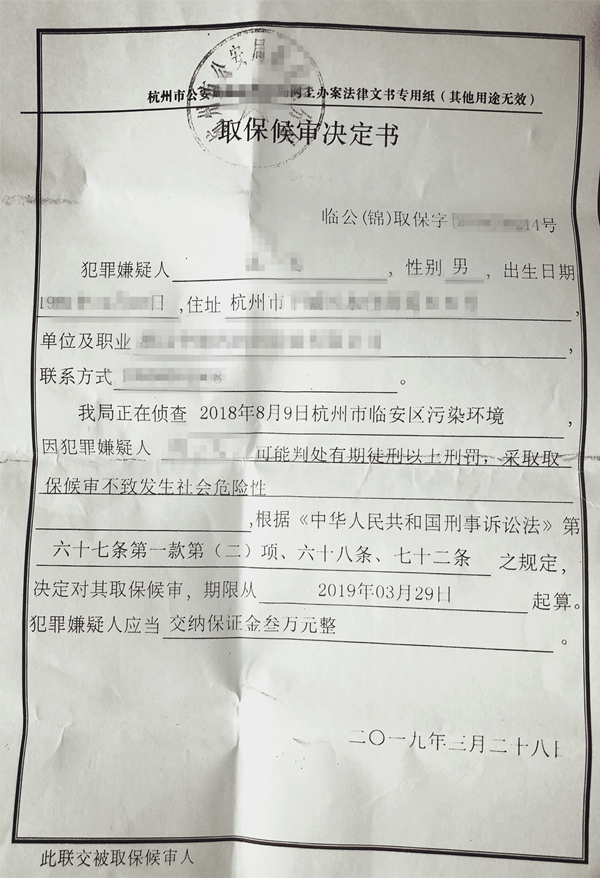 杭州市公安局
杭州市公安 网上办案法律文书专用纸（其他用途无效）
取保候审决定书
临公(锦)取保字 14号
犯罪嫌疑人 ，性别 男 ，出生日期
19 日 ,住址 杭州市 ，
单位及职业 ，
联系方式 。
我局正在侦查 2018年8月9日杭州市临安区污染环境 ，
因犯罪嫌疑人 可能判处有期徒刑以上刑罚，采取取
保候审不致发生社会危险性
,根据《中华人民共和国刑事诉讼法》第
六十七条第一款第（二）项、六十八条、七十二条 之规定，
决定对其取保候审，期限从 2019年03月29日 起算。
犯罪嫌疑人应当 交纳保证金叁万元整 。
二〇一九年三月二十八日
此联交被取保候审人